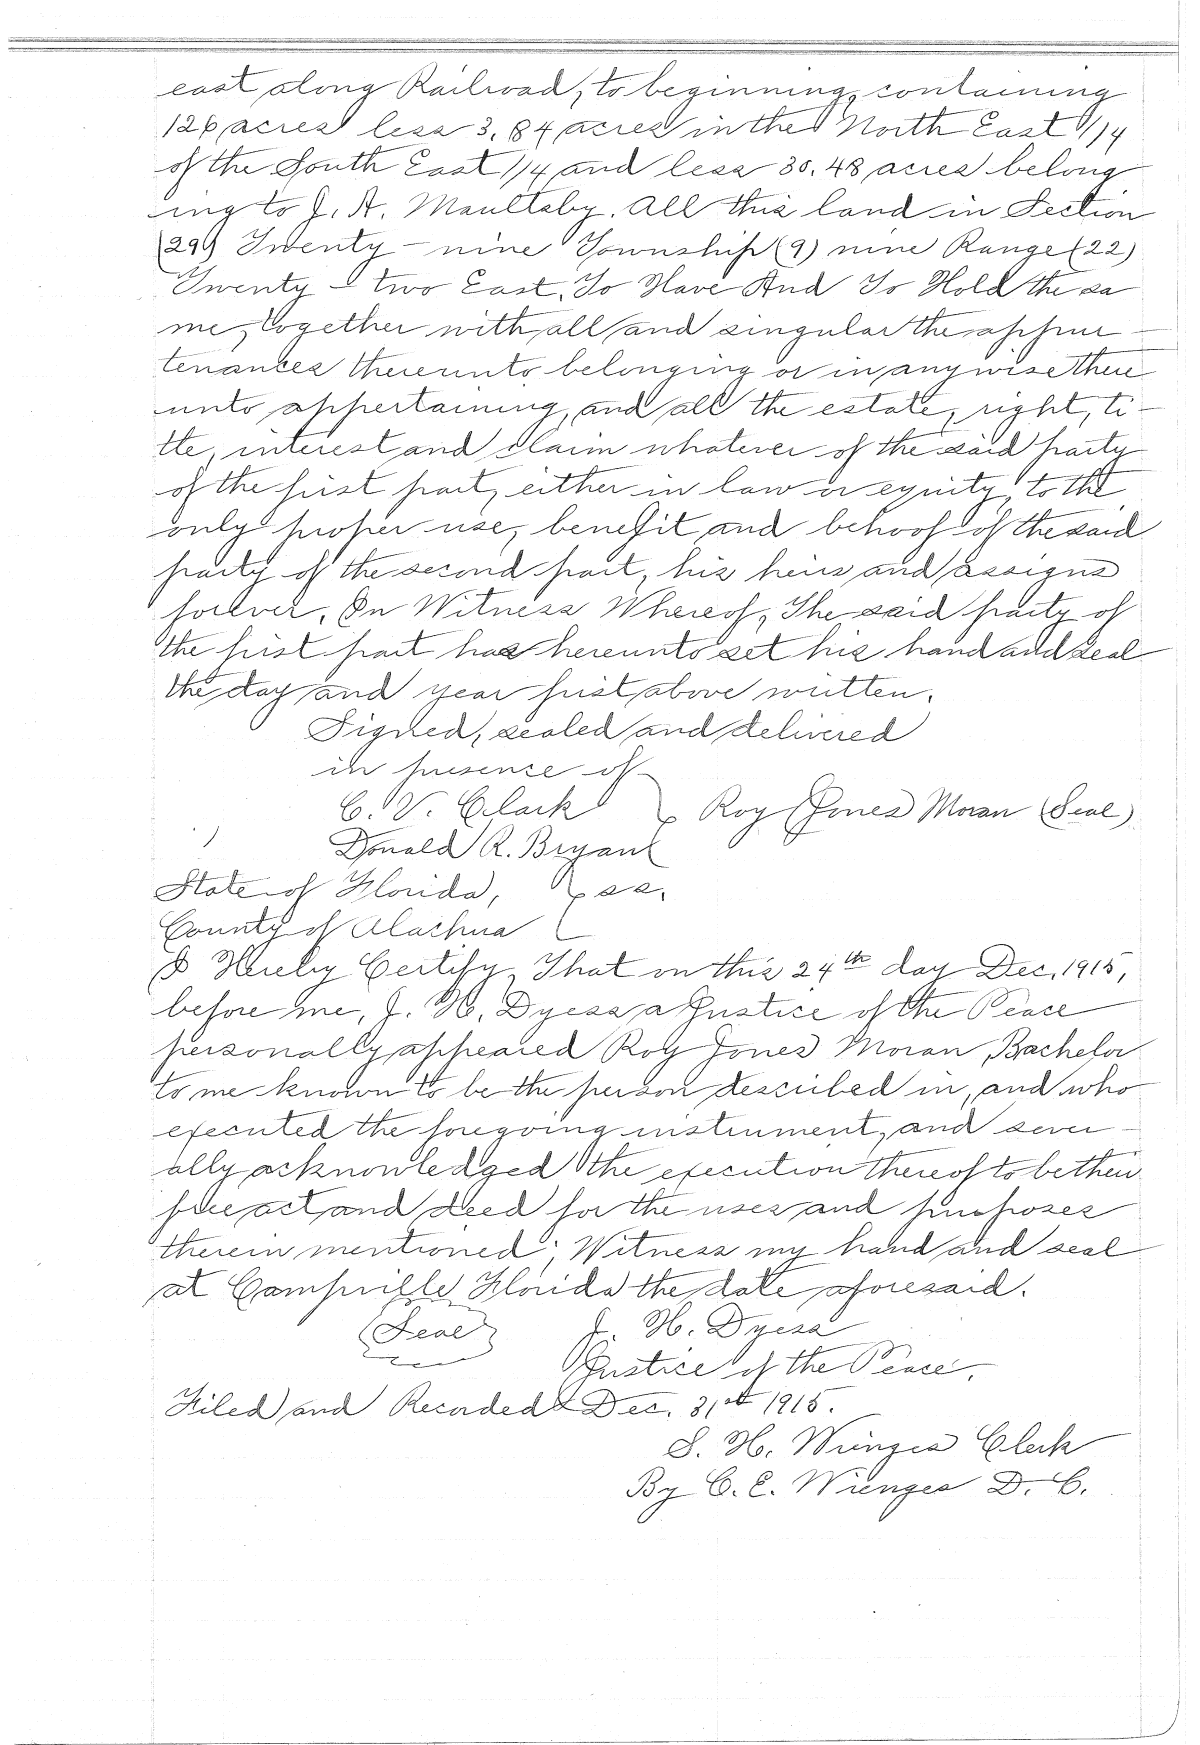 east along Railroad, to beginning, containing
126 acres less 3.84 acres in the North East 1/4
of the South East 1/4 and less 30.48 acres belong
ing to J. A. Maultsby. All this land in Section
(29) Twenty-nine Township (9) nine Range (22)
Twenty-two East. To Have And To Hold the sa
me, together with all and singular the appur-
tenances thereunto belonging or in anywise there
unto appertaining, and all the estate, right, ti-
tle, interest and claim whatever of the said party
of the first part, either in law or equity, to the
only proper use, benefit and behoof of the said
party of the second part, his heirs and assigns
forever. In Witness Whereof, The said party of
the first part has hereunto set his hand and seal
the day and year first above written.
Signed, sealed and delivered
in presence of
C. V. Clark } Roy Jones Moran (Seal)
Donald R. Bryant
State of Florida, } ss.
County of Alachua
I Hereby Certify, That on this 24th day Dec. 1915,
before me, J. H. Dyess a Justice of the Peace
personally appeared Roy Jones Moran, Bachelor
to me known to be the person described in, and who
executed the foregoing instrument, and sever-
ally acknowledged the execution thereof to be their
free act and deed for the uses and purposes
therein mentioned; Witness my hand and seal
at Campville Florida the date aforesaid.
(Seal) J. H. Dyess
Justice of the Peace.
Filed and Recorded Dec. 31st 1915.
S. H. Wienges Clerk
By C. E. Wienges D. C.